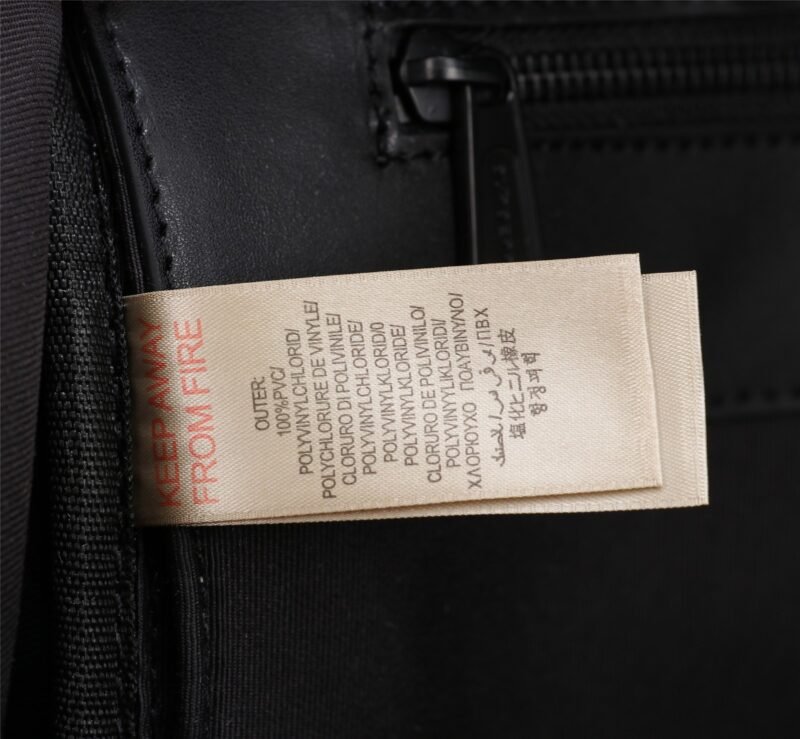 KEEP AWAY
FROM FIRE
OUTER:
100%PVC/
POLYVINYLCHLORID/
POLYCHLORURE DE VINYLE/
CLORURO DI POLIVINILE/
POLYVINYLCHLORIDE/
POLYVINYLKLORID/0
POLYVINYLKLORIDE/
CLORURO DE POLIVINILO/
POLYVINYYLIKLORIDI/
ΧΛΟΡΙΟΥΧΟ ΠΟΑΥΒΙΝΥΝΟ/ΠΒΧ
塩化ヒニル橡皮
합정피혁